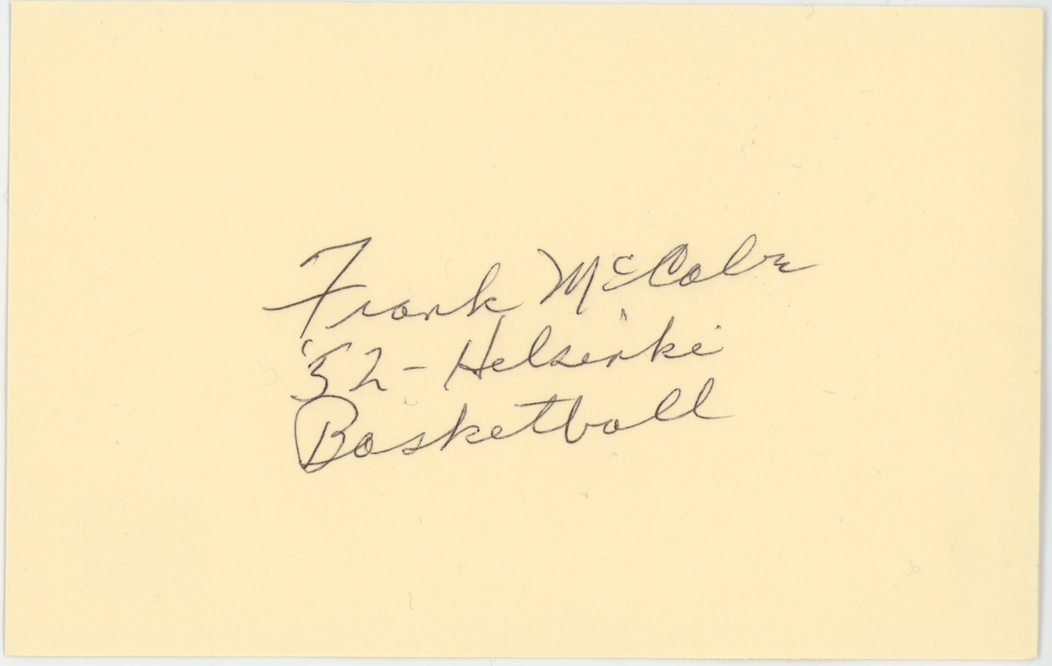 Frank McCabe
'52 - Helsinki
Basketball